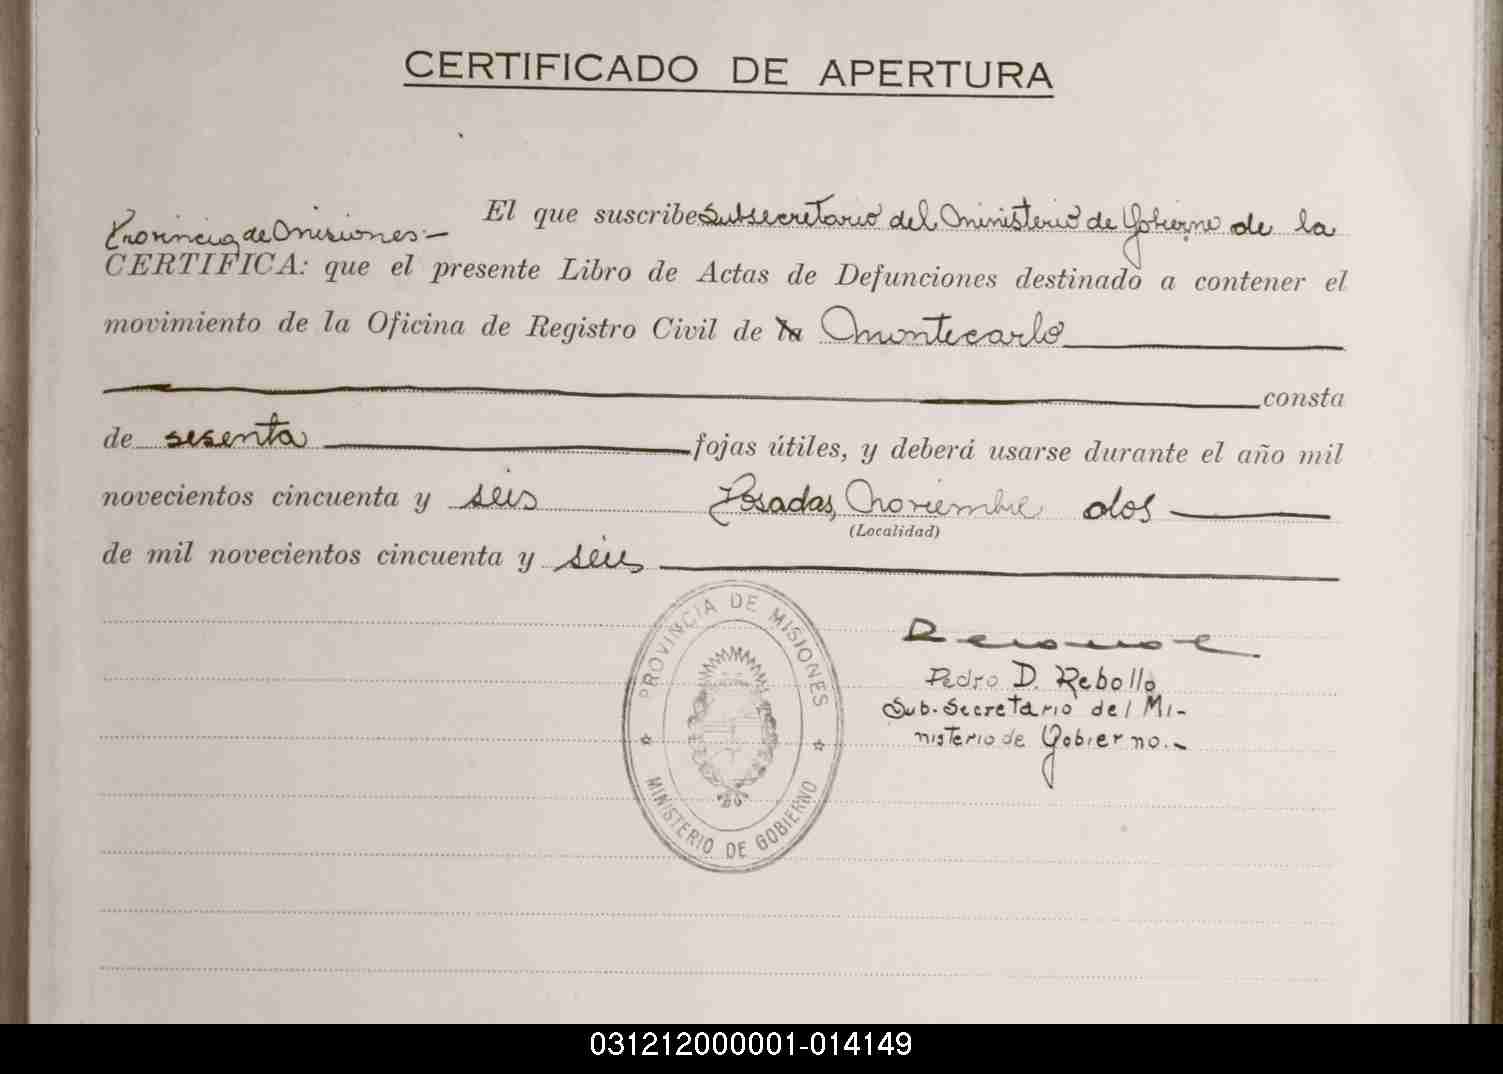 CERTIFICADO DE APERTURA
El que suscribe Subsecretario del Ministerio de Gobierno de la
Provincia de Misiones.-
CERTIFICA: que el presente Libro de Actas de Defunciones destinado a contener el
movimiento de la Oficina de Registro Civil de la Montecarlo
consta
de sesenta fojas útiles, y deberá usarse durante el año mil
novecientos cincuenta y seis Posadas, Noviembre dos
(Localidad)
de mil novecientos cincuenta y seis
PROVINCIA DE MISIONES
MINISTERIO DE GOBIERNO
Pedro D. Rebollo
Sub-Secretario del Mi-
nisterio de Gobierno.-
031212000001-014149